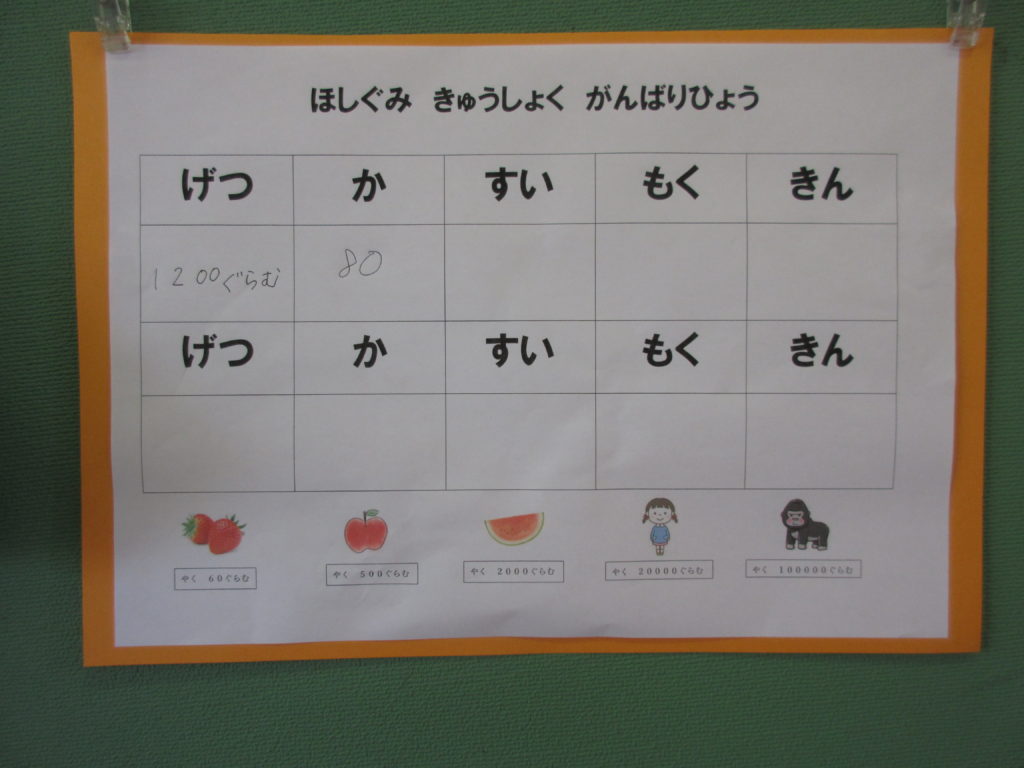 ほしぐみ きゅうしょく がんばりひょう
げつ か すい もく きん
1200ぐらむ 80
げつ か すい もく きん
やく 60ぐらむ やく 500ぐらむ やく 2000ぐらむ やく 20000ぐらむ やく 100000ぐらむ